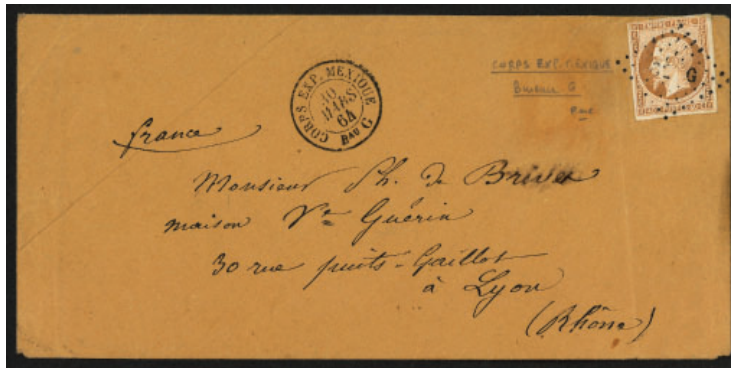 CORPS EXP. MEXIQUE
10
MARS
64
Bau G
CORPS EXP. MEXIQUE
Bureau G
G
france
Monsieur Ph. de
maison Ve Guérin
30 rue puits-Gaillot
à Lyon
(Rhône)